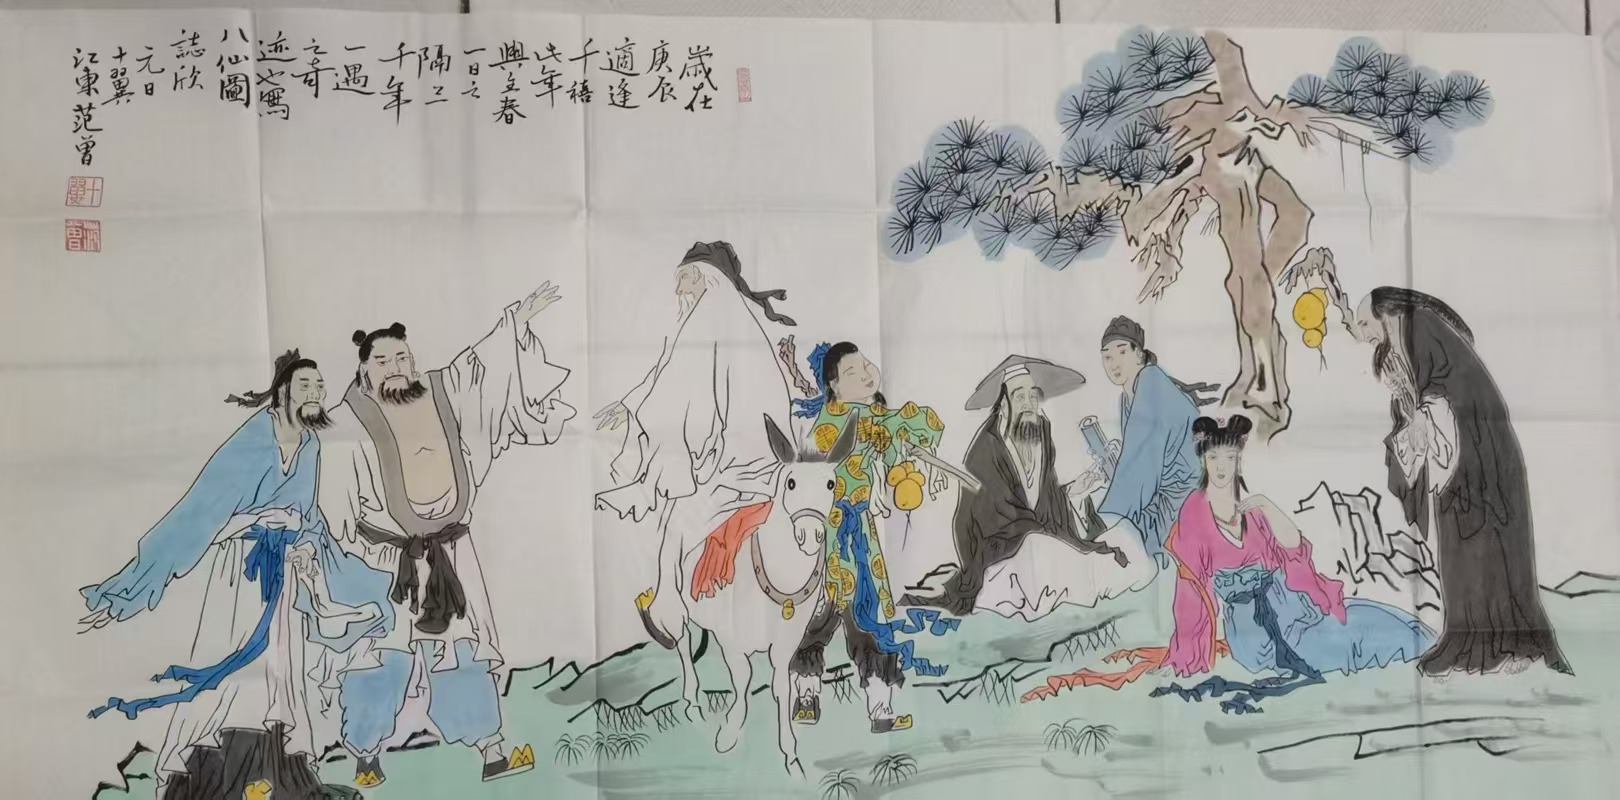 歲在
庚辰
適逢
千禧
此年
與立春
一日之
隔
千年
一遇
之奇
迹也寫
八仙圖
誌欣
元日
十翼
江東范曾
十翼